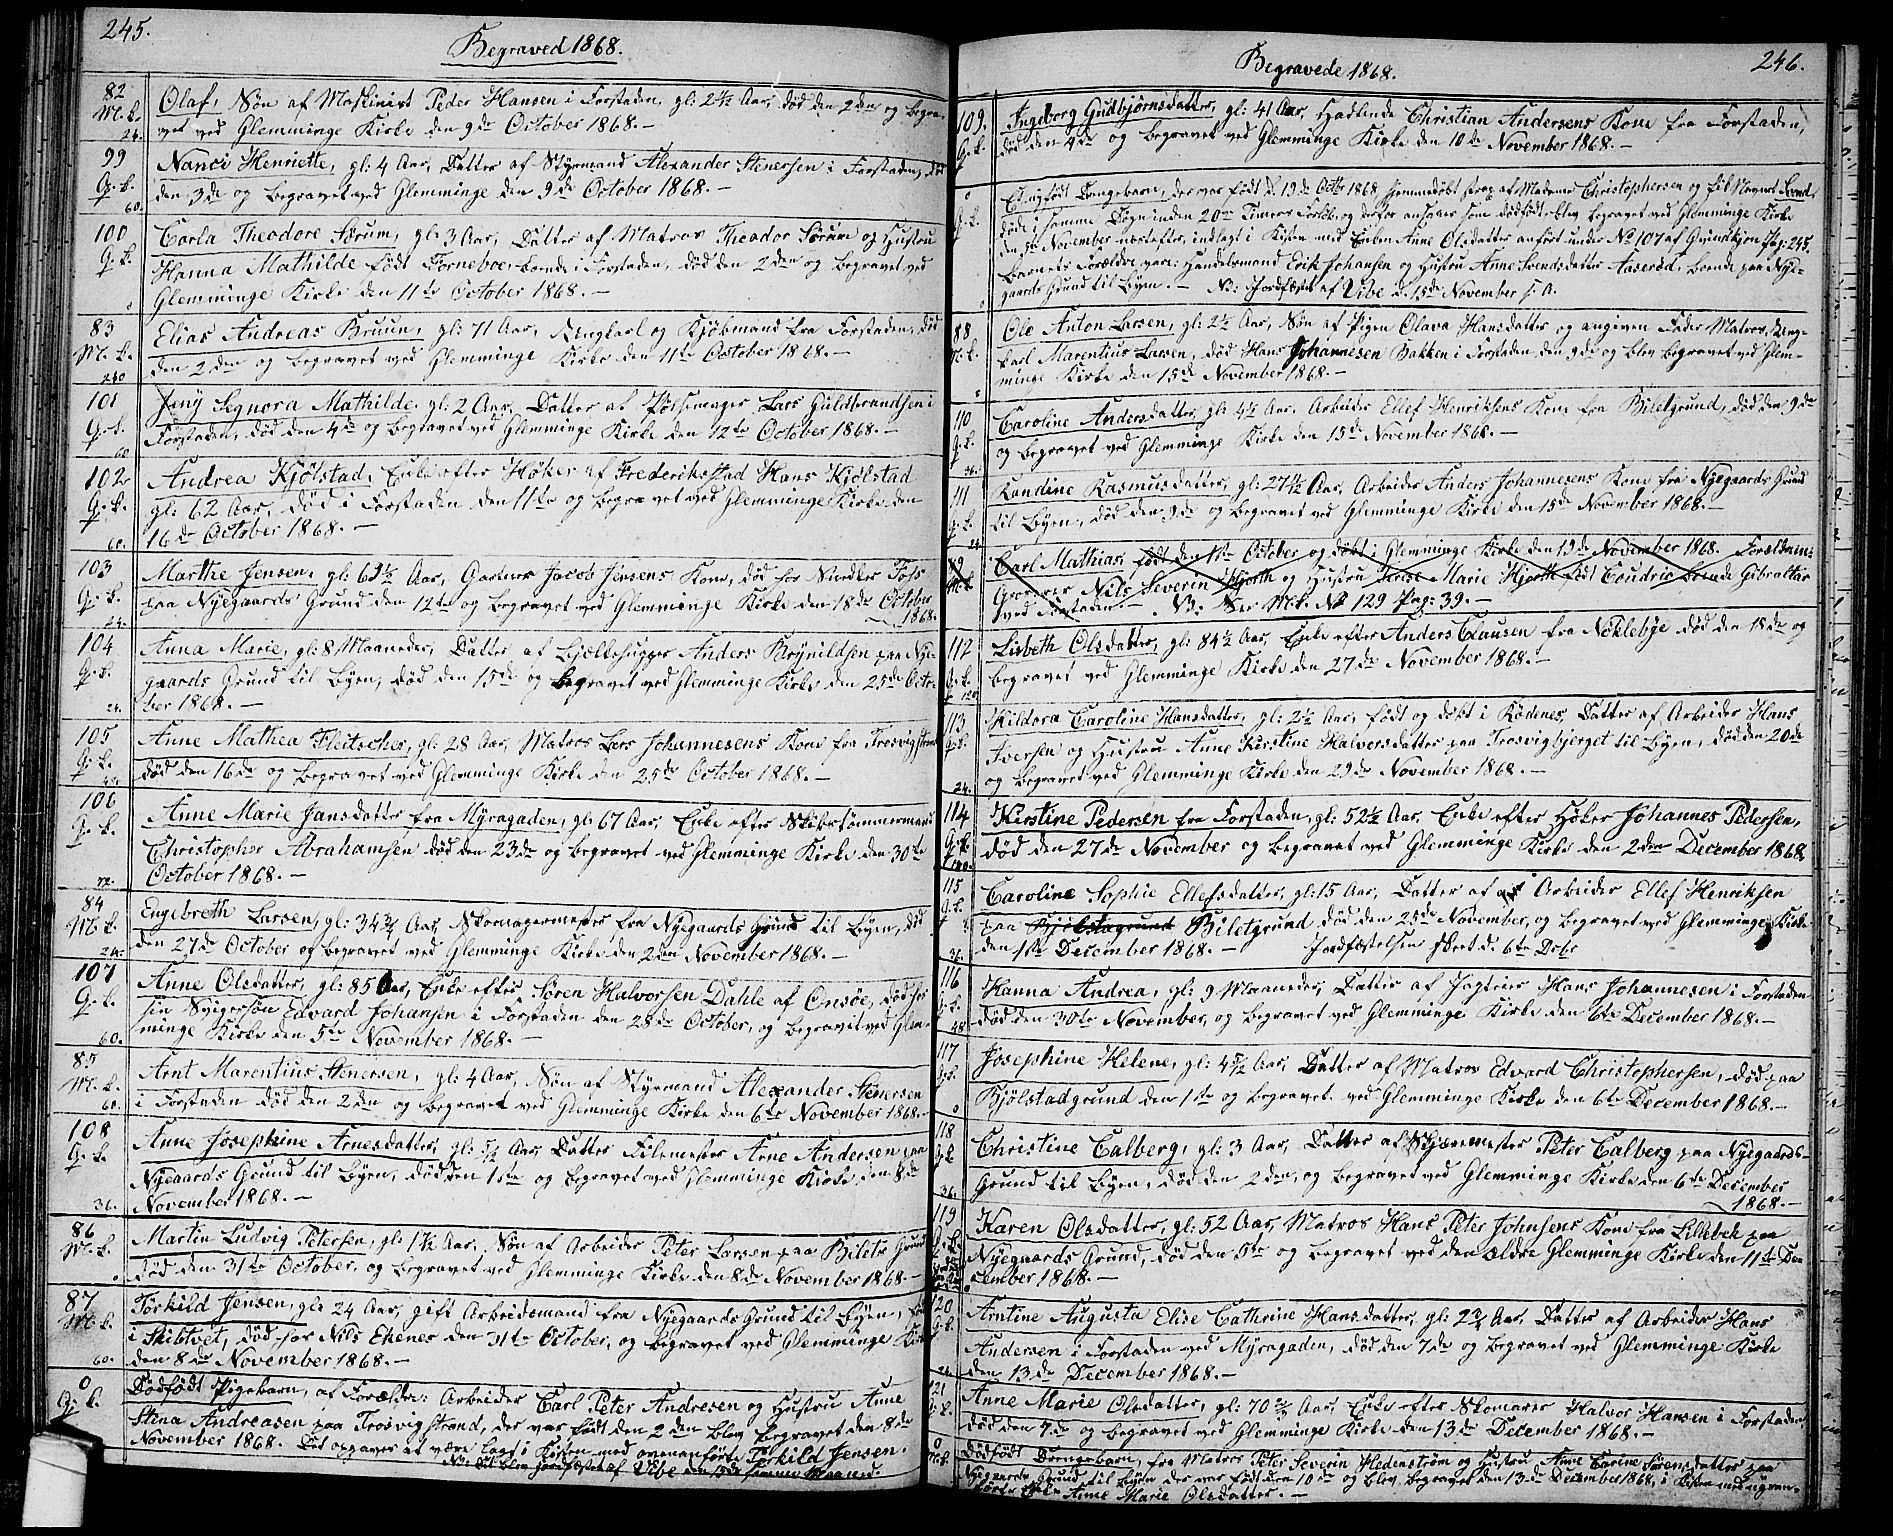 245.
Begraved 1868.
82 Olaf, Søn af Maskinist Peder Hansen i Forstaden, gl: 2½ Aar, død den 2den og begra-
M.k. vet ved Glemminge Kirke den 9de October 1868.—
24.
99 Nanci Henriette, gl: 4 Aar, Datter af Styrmand Alexander Stenersen i Forstaden, død
Q.k. den 3de og begravet ved Glemminge den 9de October 1868.—
60.
100 Carla Theodore Sørum, gl: 3 Aar, Datter af Matros Theodor Sørum og Hustru
Q.k. Hanna Mathilde født Forneboe boende i Forstaden, død den 2den og begravet ved
Glemminge Kirke den 11te October 1868.—
83 Elias Andreas Bruun, gl: 71 Aar, Ungkarl og Kjøbmand fra Forstaden, død
M.k. den 2den og begravet ved Glemminge Kirke den 11te October 1868.—
240
101 Jeny Segnora Mathilde, gl: 2 Aar, Datter af Pølsemager Lars Guldbrandsen i
Q.k. Forstaden, død den 4de og begravet ved Glemminge Kirke den 12te October 1868.—
60
102 Andrea Kjølstad, Enke efter Høker af Frederiksstad Hans Kjølstad
Q.k. gl: 62 Aar, død i Forstaden den 11te og begravet ved Glemminge Kirke den
60. 16de October 1868.—
103 Marthe Jensen, gl: 63½ Aar, Gartner Jacob Jensens Kone, død
Q.k. paa Nyegaards Grund den 12te og begravet ved Glemminge Kirke den 18de October
24. 1868.
104 Anna Marie, gl: 8 Maaneder, Datter af Anders Brynildsen paa Nye-
Q.k. gaards Grund til Byen, død den 15de og begravet ved Glemminge Kirke den 25de Octo-
24. ber 1868.—
105 Anne Mathea Fleitscher, gl: 28 Aar, Matros Lars Johannesens Kone fra Trosvigstrand
Q.k. død den 16de og begravet ved Glemminge Kirke den 25de October 1868.—
106 Anne Marie Jansdatter fra Myragaden, gl: 67 Aar, Enke efter Skibstømmermand
Q.k. Christopher Abrahamsen død den 23de og begravet ved Glemminge Kirke den 30te
72. October 1868.—
84 Engebreth Larsen, gl: 34¾ Aar, Skomagermester fra Nyegaards Grund til Byen, død
M.k. den 27de October og begravet ved Glemminge Kirke den 2den November 1868.—
24.
107 Anne Olsdatter, gl: 85 Aar, Enke efter Søren Halvorsen Dahle af Onsøe, død hos
Q.k. sin Svigersøn Edvard Johansen i Forstaden den 28de October, og begravet ved Glem-
60. minge Kirke den 5te November 1868.—
85 Arnt Marentius Stenersen, gl: 4 Aar, Søn af Styrmand Alexander Stenersen
M.k. i Forstaden død den 2den og begravet ved Glemminge Kirke den 6te November 1868.—
60.
108 Anne Josephine Arnesdatter, gl: Aar, Datter Filemester Arne Andersen paa
Q.k. Nyegaards Grund til Byen, død den 1ste og begravet ved Glemminge Kirke den 8de
36. November 1868.—
86 Martin Ludvig Petersen, gl: Aar, Søn af Arbeider Peter Larsen paa Bilets Grund
M.k. død den 31te October, og begravet ved Glemminge Kirke den 8de November 1868.—
87 Torkild Jensen, gl: 24 Aar, gift Arbeidsmand fra Nyegaards Grund til Byen,
M.k. i Skibtvet, død hos Nils Ekenes den 31te October, og begravet ved Glemminge Kirke
60. den 8de November 1868.—
0 Dødfødt Pigebarn, af Forældre: Arbeider Carl Peter Andresen og Hustru Anne
Q.k. Stina Andreasen paa Trosvig Strand, der var født den 2den blev begravet den 8de
November 1868. Det opgaves at være lagt i Kisten med ovenanførte Torkild Jensen.
NB: blev jordfæstet af Vibe den 15de samme Maaned.
246.
Begravede 1868.
109. Ingeborg Gudbjørnsdatter, gl: 41 Aar, Christian Andersens Kone fra Forstaden,
Q.k. død den 4de og begravet ved Glemminge Kirke den 10de November 1868.—
0 Drengebarn, der var født d. 19de Octbr 1868 hjemmedøbt strax af Madame Christophersen og til Navnet Svend,
døde i samme Døgn inden 20de Timers Forløb, og derfor ansaaes som dødfødt, blev begravet ved Glemminge Kirke
den 5te November næstefter, indlagt i Kisten med Enken Anne Olsdatter anført under No 107 af Qvindekjøn Pag: 245.
Barnets Forældre vare: Handelsmand Erik Johansen og Hustru Anne Svendsdatter Aaserød, boende paa Nye-
gaards Grund til Byen.— NB: Jordfæstet af Vibe d. 15de November s. A.
88 Ole Anton Larsen, gl: 2½ Aar, Søn af Pigen Olava Hansdatter og angiven Fader Matros, Ung-
M.k. karl Marentius Larsen, død Hans Johannesen Bakken i Forstaden, den 9de og blev begravet ved Glem-
minge Kirke den 15de November 1868.—
110 Caroline Andersdatter, gl: Aar, Arbeider Ellef Henriksens Kone fra Biletgrund, død den 9de
Q.k. og begravet ved Glemminge Kirke den 15de November 1868.—
36.
111 Randine Rasmusdatter, gl: Aar, Arbeider Anders Johannesens Kone fra Nyegaards Grund
Q.k. til Byen, død den 9de og begravet ved Glemminge Kirke den 15de November 1868.—
24
89 Carl Mathias, født den 1ste October og døbt i Glemminge Kirke den 19de November 1868. Forældrene:
M.k. Grosserer Nils Severin Hjorth og Hustru Marie Hjorth født Coudric boende Gibraltar
ved Forstaden.— NB: See M.k. No 129 Pag: 39.—
112 Lisbeth Olsdatter, gl: 84½ Aar, Enke efter Anders Clausen fra Nøklebye død den 18de og
Q.k. begravet ved Glemminge Kirke den 27de November 1868.—
120.
113 Hildora Caroline Hansdatter, gl: 2½ Aar, født og døbt i Rødenes, Datter af Arbeider Hans
Q.k. Iversen og Hustru Anne Kirstine Halvorsdatter paa Trosvigbjerget til Byen, død den 20de
24. og begravet ved Glemminge Kirke den 29de November 1868.—
114 Kirstine Pedersen fra Forstaden, gl: 52½ Aar, Enke efter Høker Johannes Pedersen,
Q.k. død den 27de November og begravet ved Glemminge Kirke den 2den December 1868.
115 Caroline Sophie Ellefsdatter, gl: 15 Aar, Datter af Arbeider Ellef Henriksen
Q.k. paa Bjølstagrund Biletgrund død den 25de November, og begravet ved Glemminge Kirke
36. den 1ste December 1868.— Jordfæstelsen skeed d. 6te Decbr
116 Hanna Andrea, gl: 9 Maaneder, Datter af Jagteier Hans Johannesen i Forstaden
Q.k. død den 30te November, og begravet ved Glemminge Kirke den 6te December 1868.—
48
117 Josephine Helene, gl: Aar, Datter af Matros Edvard Christophersen, død paa
Q.k. Bjølstadgrund den 1ste og begravet ved Glemminge Kirke den 6te December 1868.—
118 Christine Calberg, gl: 3 Aar, Datter af Peter Calberg paa Nyegaards-
Q.k. Grund til Byen, død den 2den, og begravet ved Glemminge Kirke den 6te December
36. 1868.—
119 Karen Olsdatter, gl: 52 Aar, Matros Hans Peter Johnsens Kone fra Lillebek paa
Q.k. Nyegaards Grund, død den 5te og begravet ved den ældre Glemminge Kirke den 11te De-
cember 1868.—
120 Arntine Augusta Elise Cathrine Hansdatter, gl: 2¾ Aar, Datter af Arbeider Hans
Q.k. Andersen i Forstaden ved Myragaden, død den 7de og begravet ved Glemminge Kirke
24. den 13de December 1868.—
121 Anne Marie Olsdatter, gl: 70 Aar, Enke efter Skomager Halvor Hansen i Forstaden
Q.k. død den 7de og begravet ved Glemminge Kirke den 13de December 1868.—
0 Dødfødt Drengebarn, fra Matros Peter Severin Hedenstrøm og Hustru Anne Carine Sørensdatter paa
M.k. Nyegaards Grund til Byen der var født den 10de og blev begravet den 13de December 1868, i Kisten med oven-
førte Enke Anne Marie Olsdatter.—